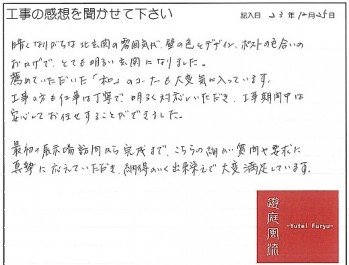 工事の感想を聞かせて下さい
記入日 23年12月25日
暗くなりがちな北玄関の雰囲気が、壁の色とデザイン、ポストの色合いの
おかげで、とても明るい玄関になりました。
薦めていただいた「和」のコーナーも大変気に入っています。
工事の方も仕事は丁寧で、明るく対応いただき、工事期間中は
安心してお任せすることができました。
最初の展示場訪問から完成まで、こちらの細かい質問や要求に
真摯に応えていただき、納得のいく出来栄えで大変満足しています。
遊庭風流
-Yutei Furyu-